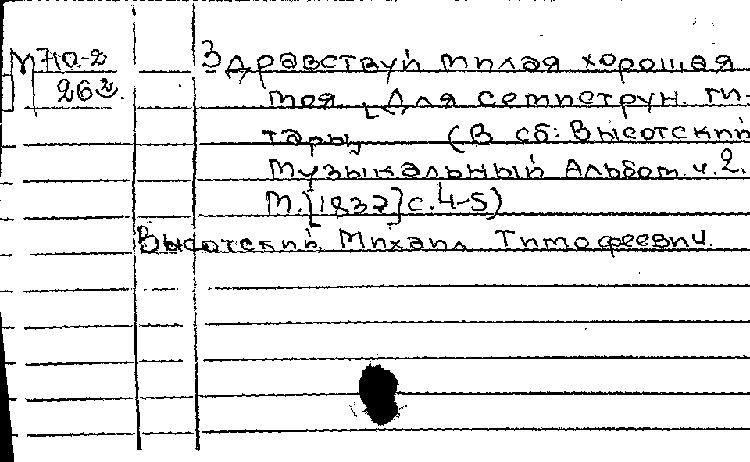 М710-2
262.
Здравствуй милая хорошая
моя, [Для семиструн. ги-
тары] (В сб: Высотский
Музыкальный Альбом. ч. 2.
М. [1837] с. 4-5)
Высотский, Михаил Тимофеевич.